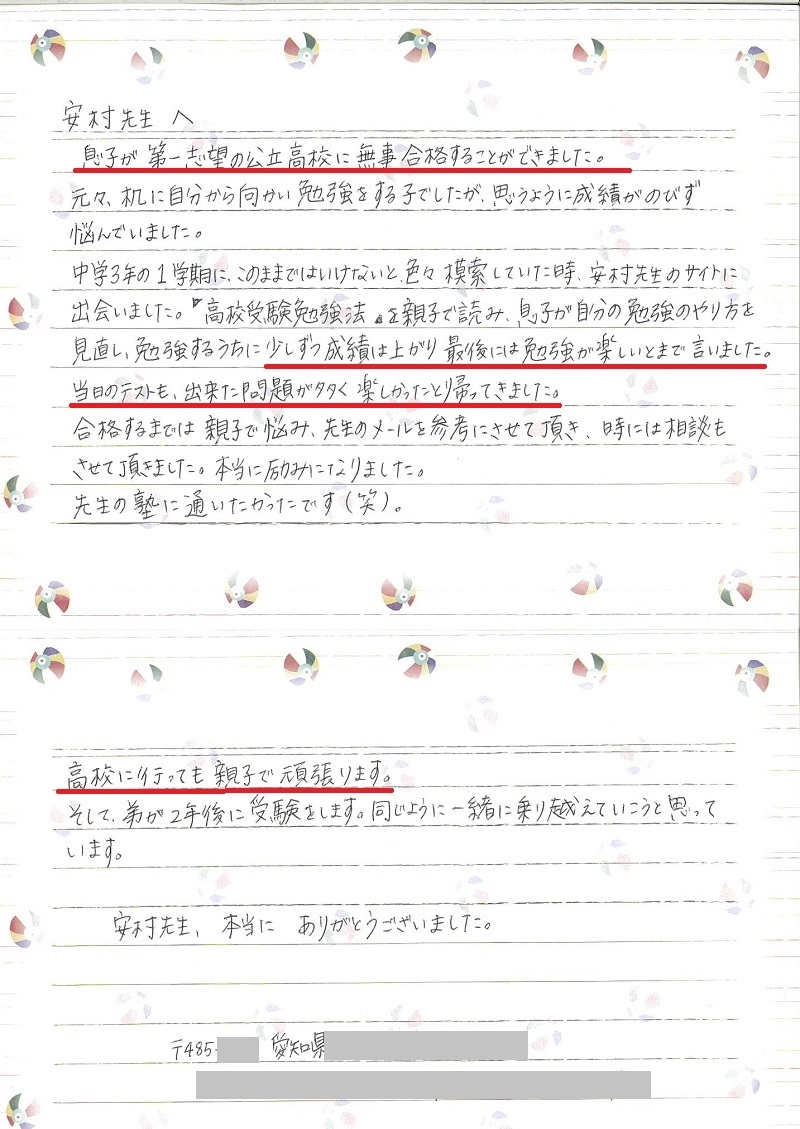 安村先生 へ
息子が 第一志望の公立高校に 無事 合格することができました。
元々、机に自分から向かい 勉強をする子でしたが、思うように成績がのびず
悩んでいました。
中学3年の1学期に、このままではいけないと、色々 模索していた時、安村先生のサイトに
出会いました。『高校受験勉強法』を親子で読み、息子が自分の勉強のやり方を
見直し、勉強するうちに少しずつ成績は上がり 最後には勉強が楽しいとまで言いました。
当日のテストも、出来た問題が多く 楽しかったと帰ってきました。
合格するまでは 親子で悩み、先生のメールを参考にさせて頂き、時には相談も
させて頂きました。本当に励みになりました。
先生の塾に通いたかったです(笑)。
高校に行っても 親子で 頑張ります。
そして、弟が2年後に受験をします。同じように一緒に乗り越えていこうと思って
います。
安村先生、本当に ありがとうございました。
〒485- 愛知県